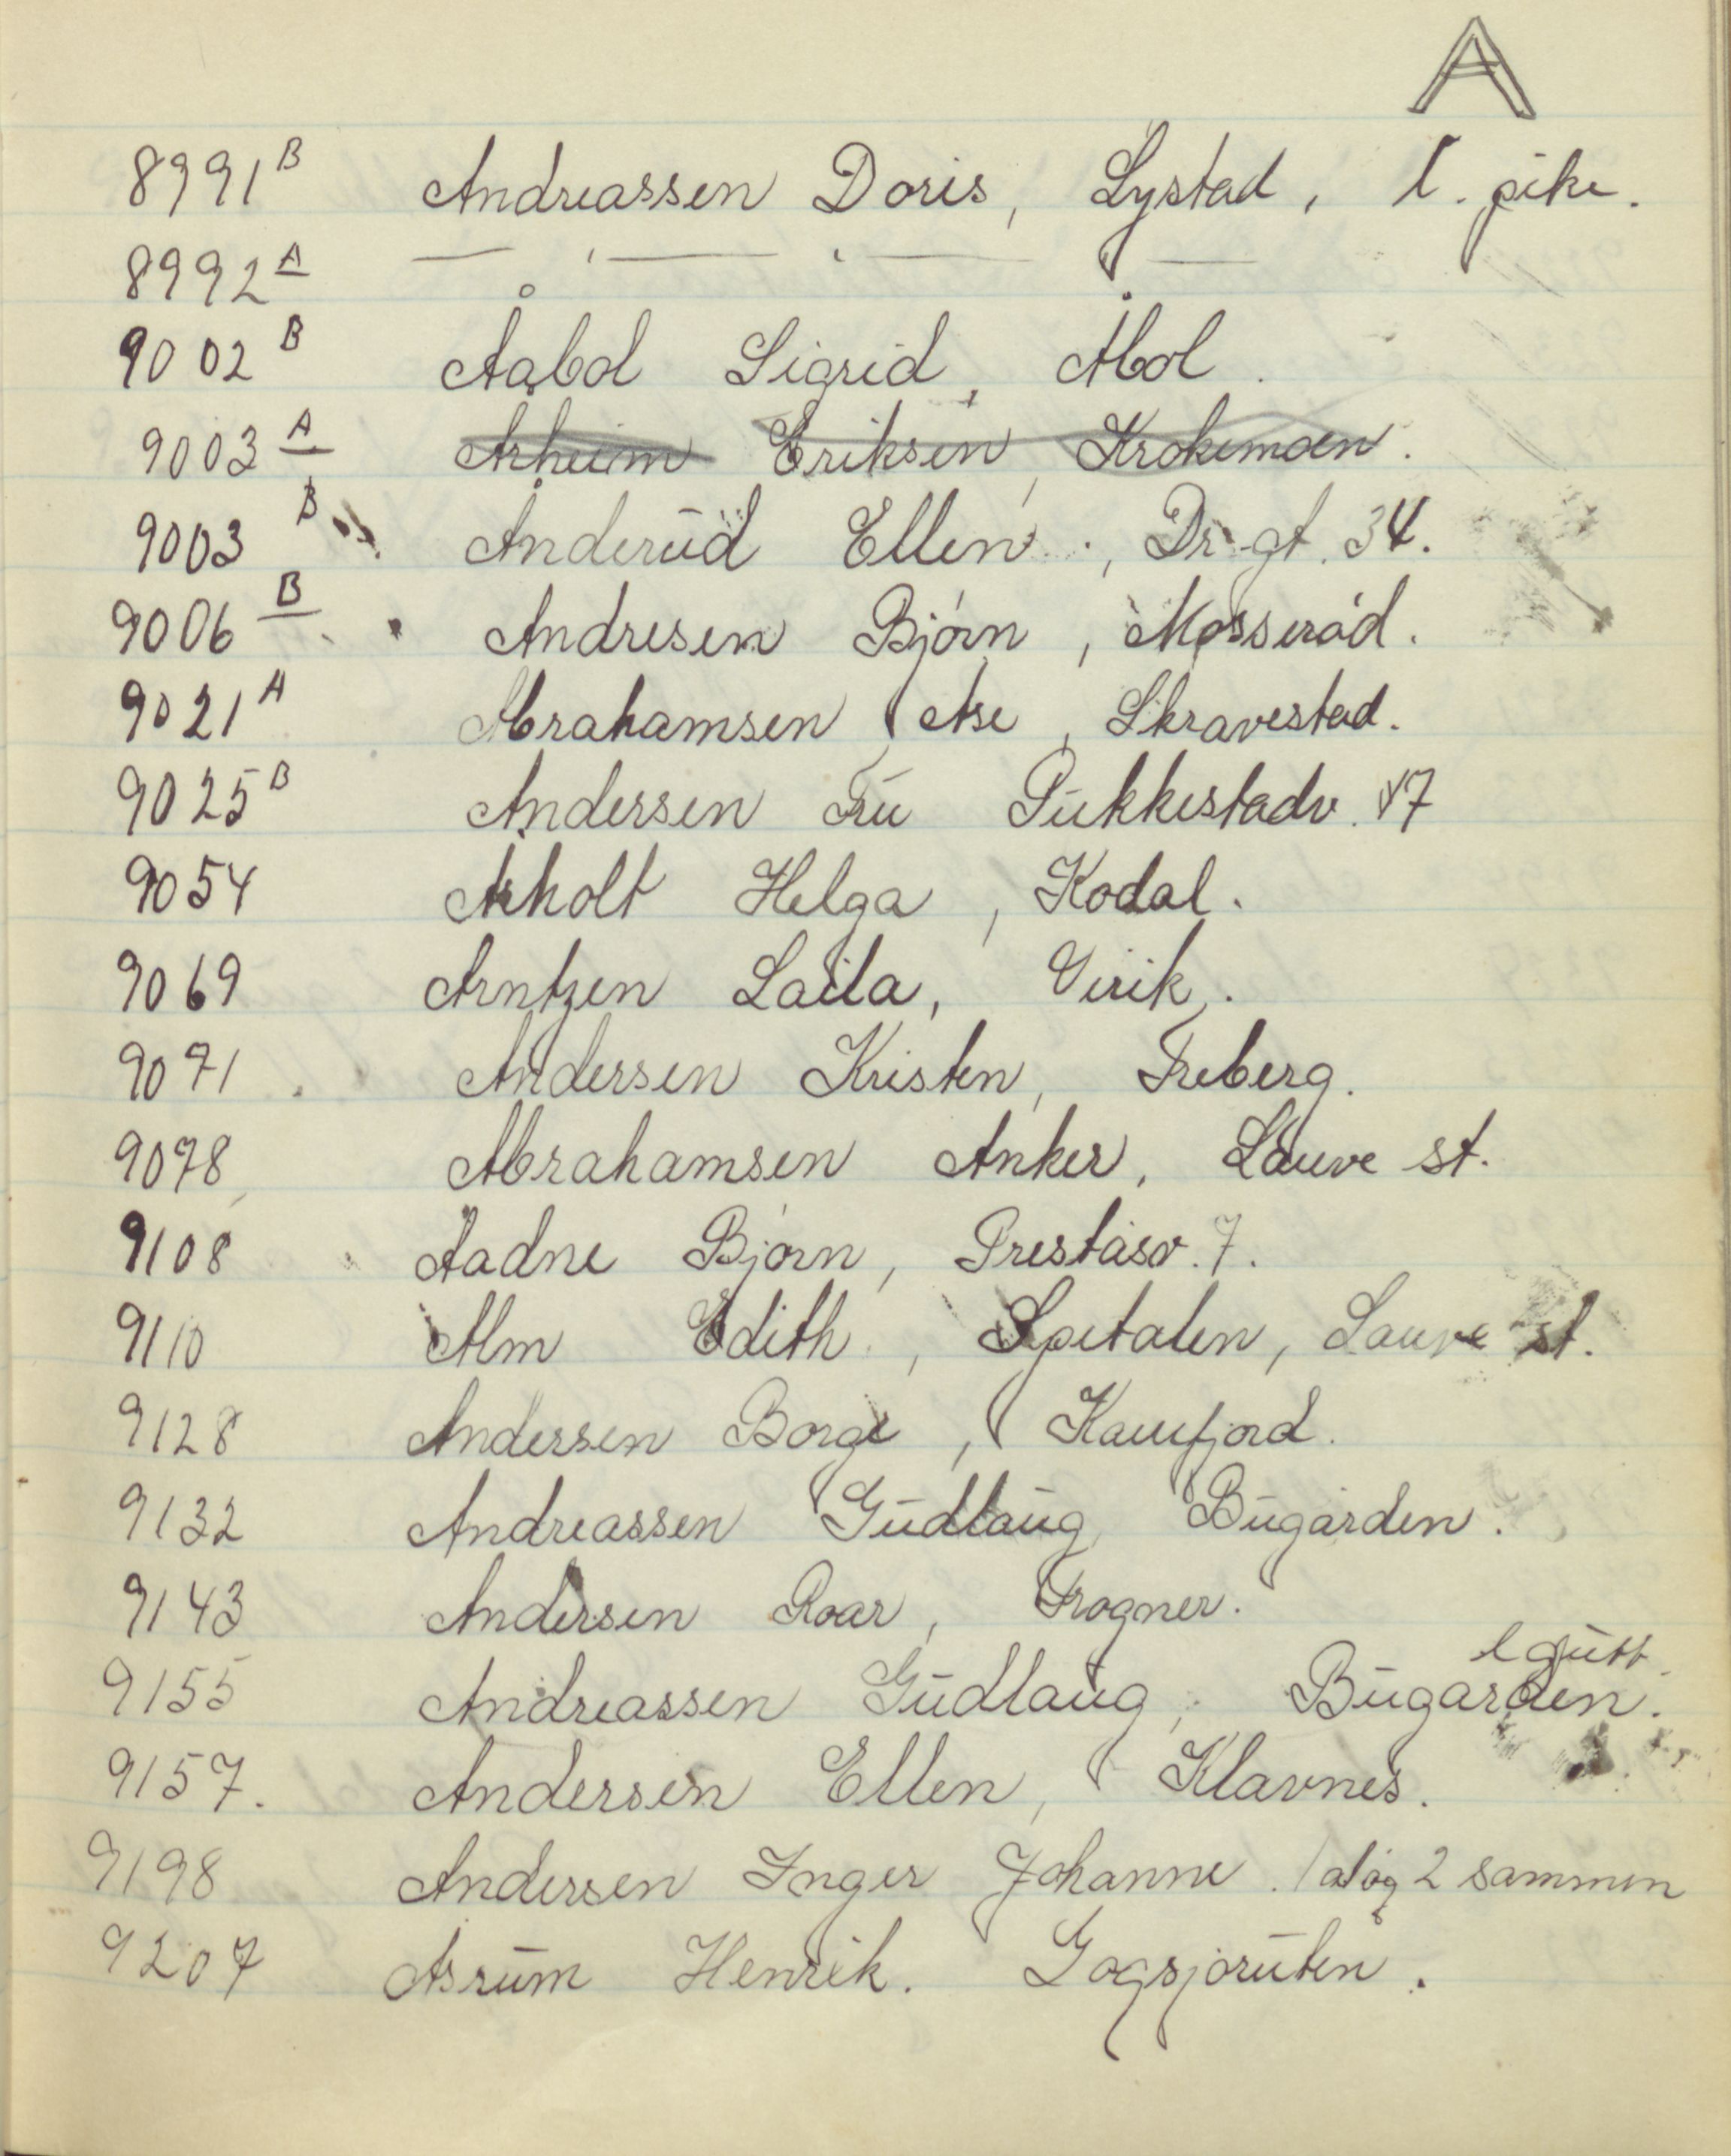 A
8991 B Andreassen Doris, Lystad, l. pike.
8992 A — ' — ' —
9002 B Åabol Sigrid, Åbol.
9003 A Arheim Eriksen, Krokemoen.
9003 B Anderud Ellen, Dr. gt. 34.
9006 B Andresen Bjørn, Mosserød.
9021 A Abrahamsen Åse, Skravestad.
9025 B Andersen Fru Pukkestadv. 17
9054 Arholt Helga, Kodal.
9069 Arntzen Laila, Virik.
9071 Andersen Kristen, Freberg.
9078 Abrahamsen Anker, Lauve st.
9108 Aadne Bjørn, Preståsv. 7.
9110 Alm Edith, Spetalen, Lauve st.
9128 Andersen Borge, Kamfjord.
9132 Andreassen Gudlaug, Bugården.
9143 Andersen Roar, Frogner.
l gutt
9155 Andreassen Gudlaug, Bugården.
9157. Andersen Ellen, Klavnes.
9198 Andersen Inger Johanne. 1 og 2 sammen
9207 Asrum Henrik. Gogsjøruten.